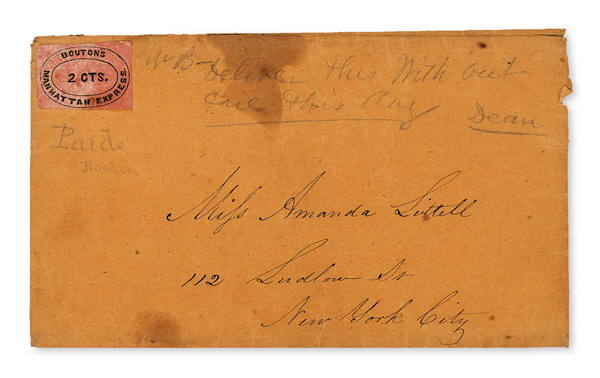 BOUTON'S
2 CTS.
MANHATTAN EXPRESS.
Deliver this With out
fail this Day
Dean
Paid
Bouton
Miss Amanda Littell
112 Ludlow St
New York City